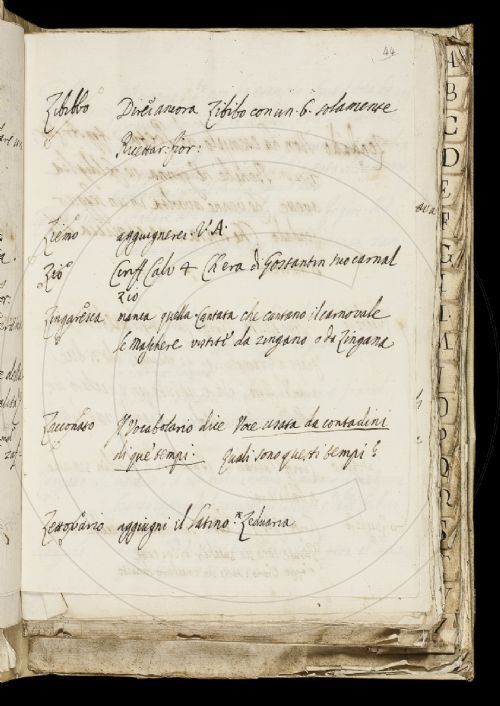 44
Zibibbo Direi ancora Zibibo con un .b. solamente
Ricettar: fior:
Zio Ciriff Calv 4 Ch'era di Gostantin suo carnal
zio
Zingaresca manca quella Cantata che cantano il carnovale
le Maschere vestite da zingano o da Zingana
Il Vocabolario dice Voce usata da contadini
di que' tempi. Quali sono questi tempi?
Zettovario aggiugni il Latino Zeduaria
A
B
C
D
E
F
G
I
L
O
P
Q
R
S